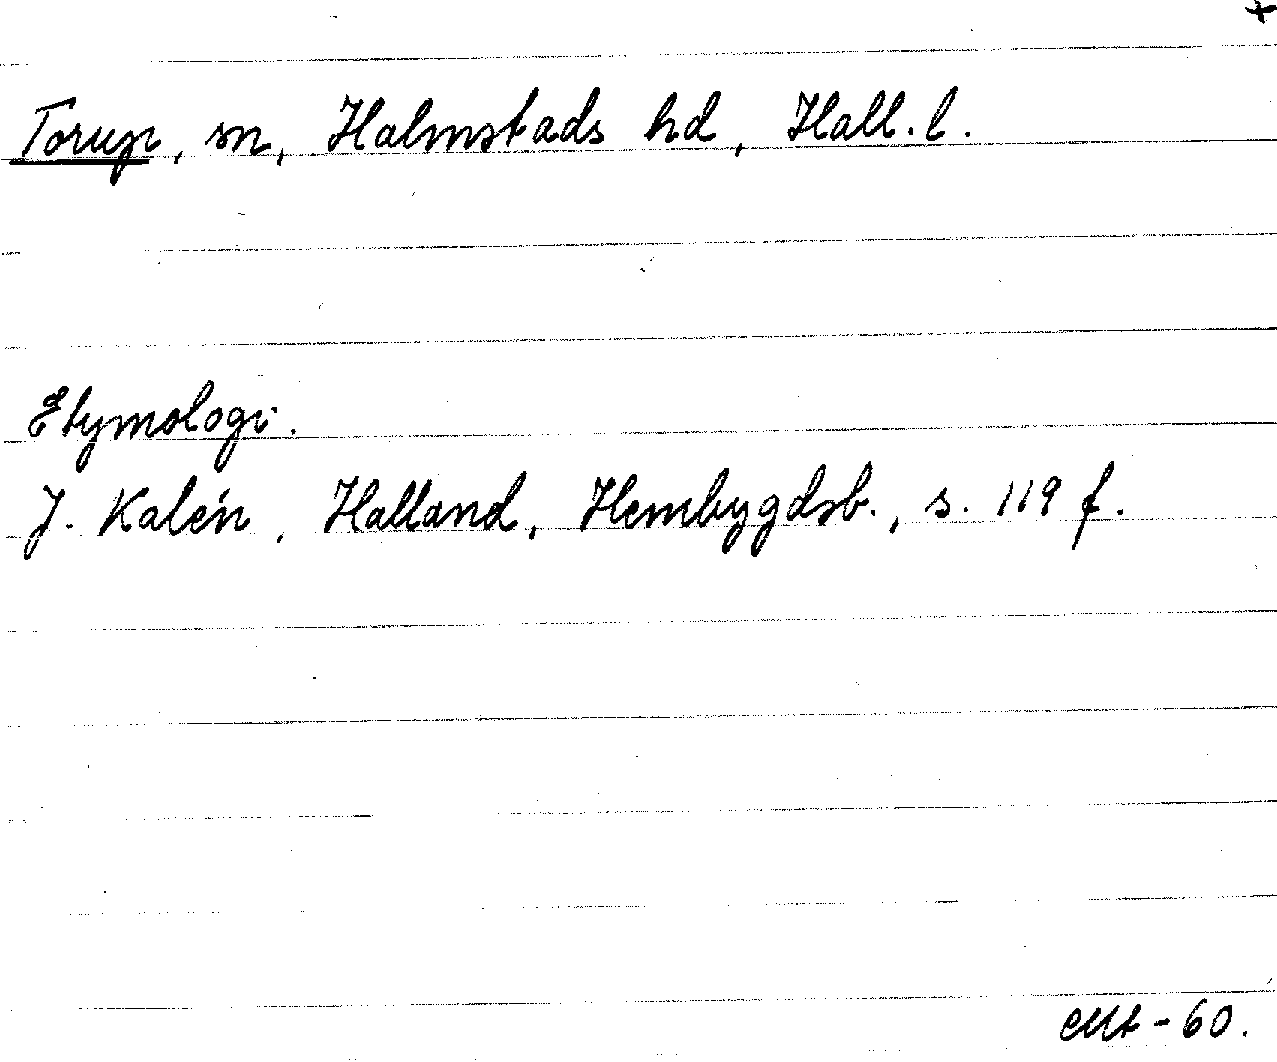 +
Torup, sn, Halmstads hd, Hall. l.
Etymologi.
J. Kalén, Halland, Hembygdsb., s. 119 f.
-60.